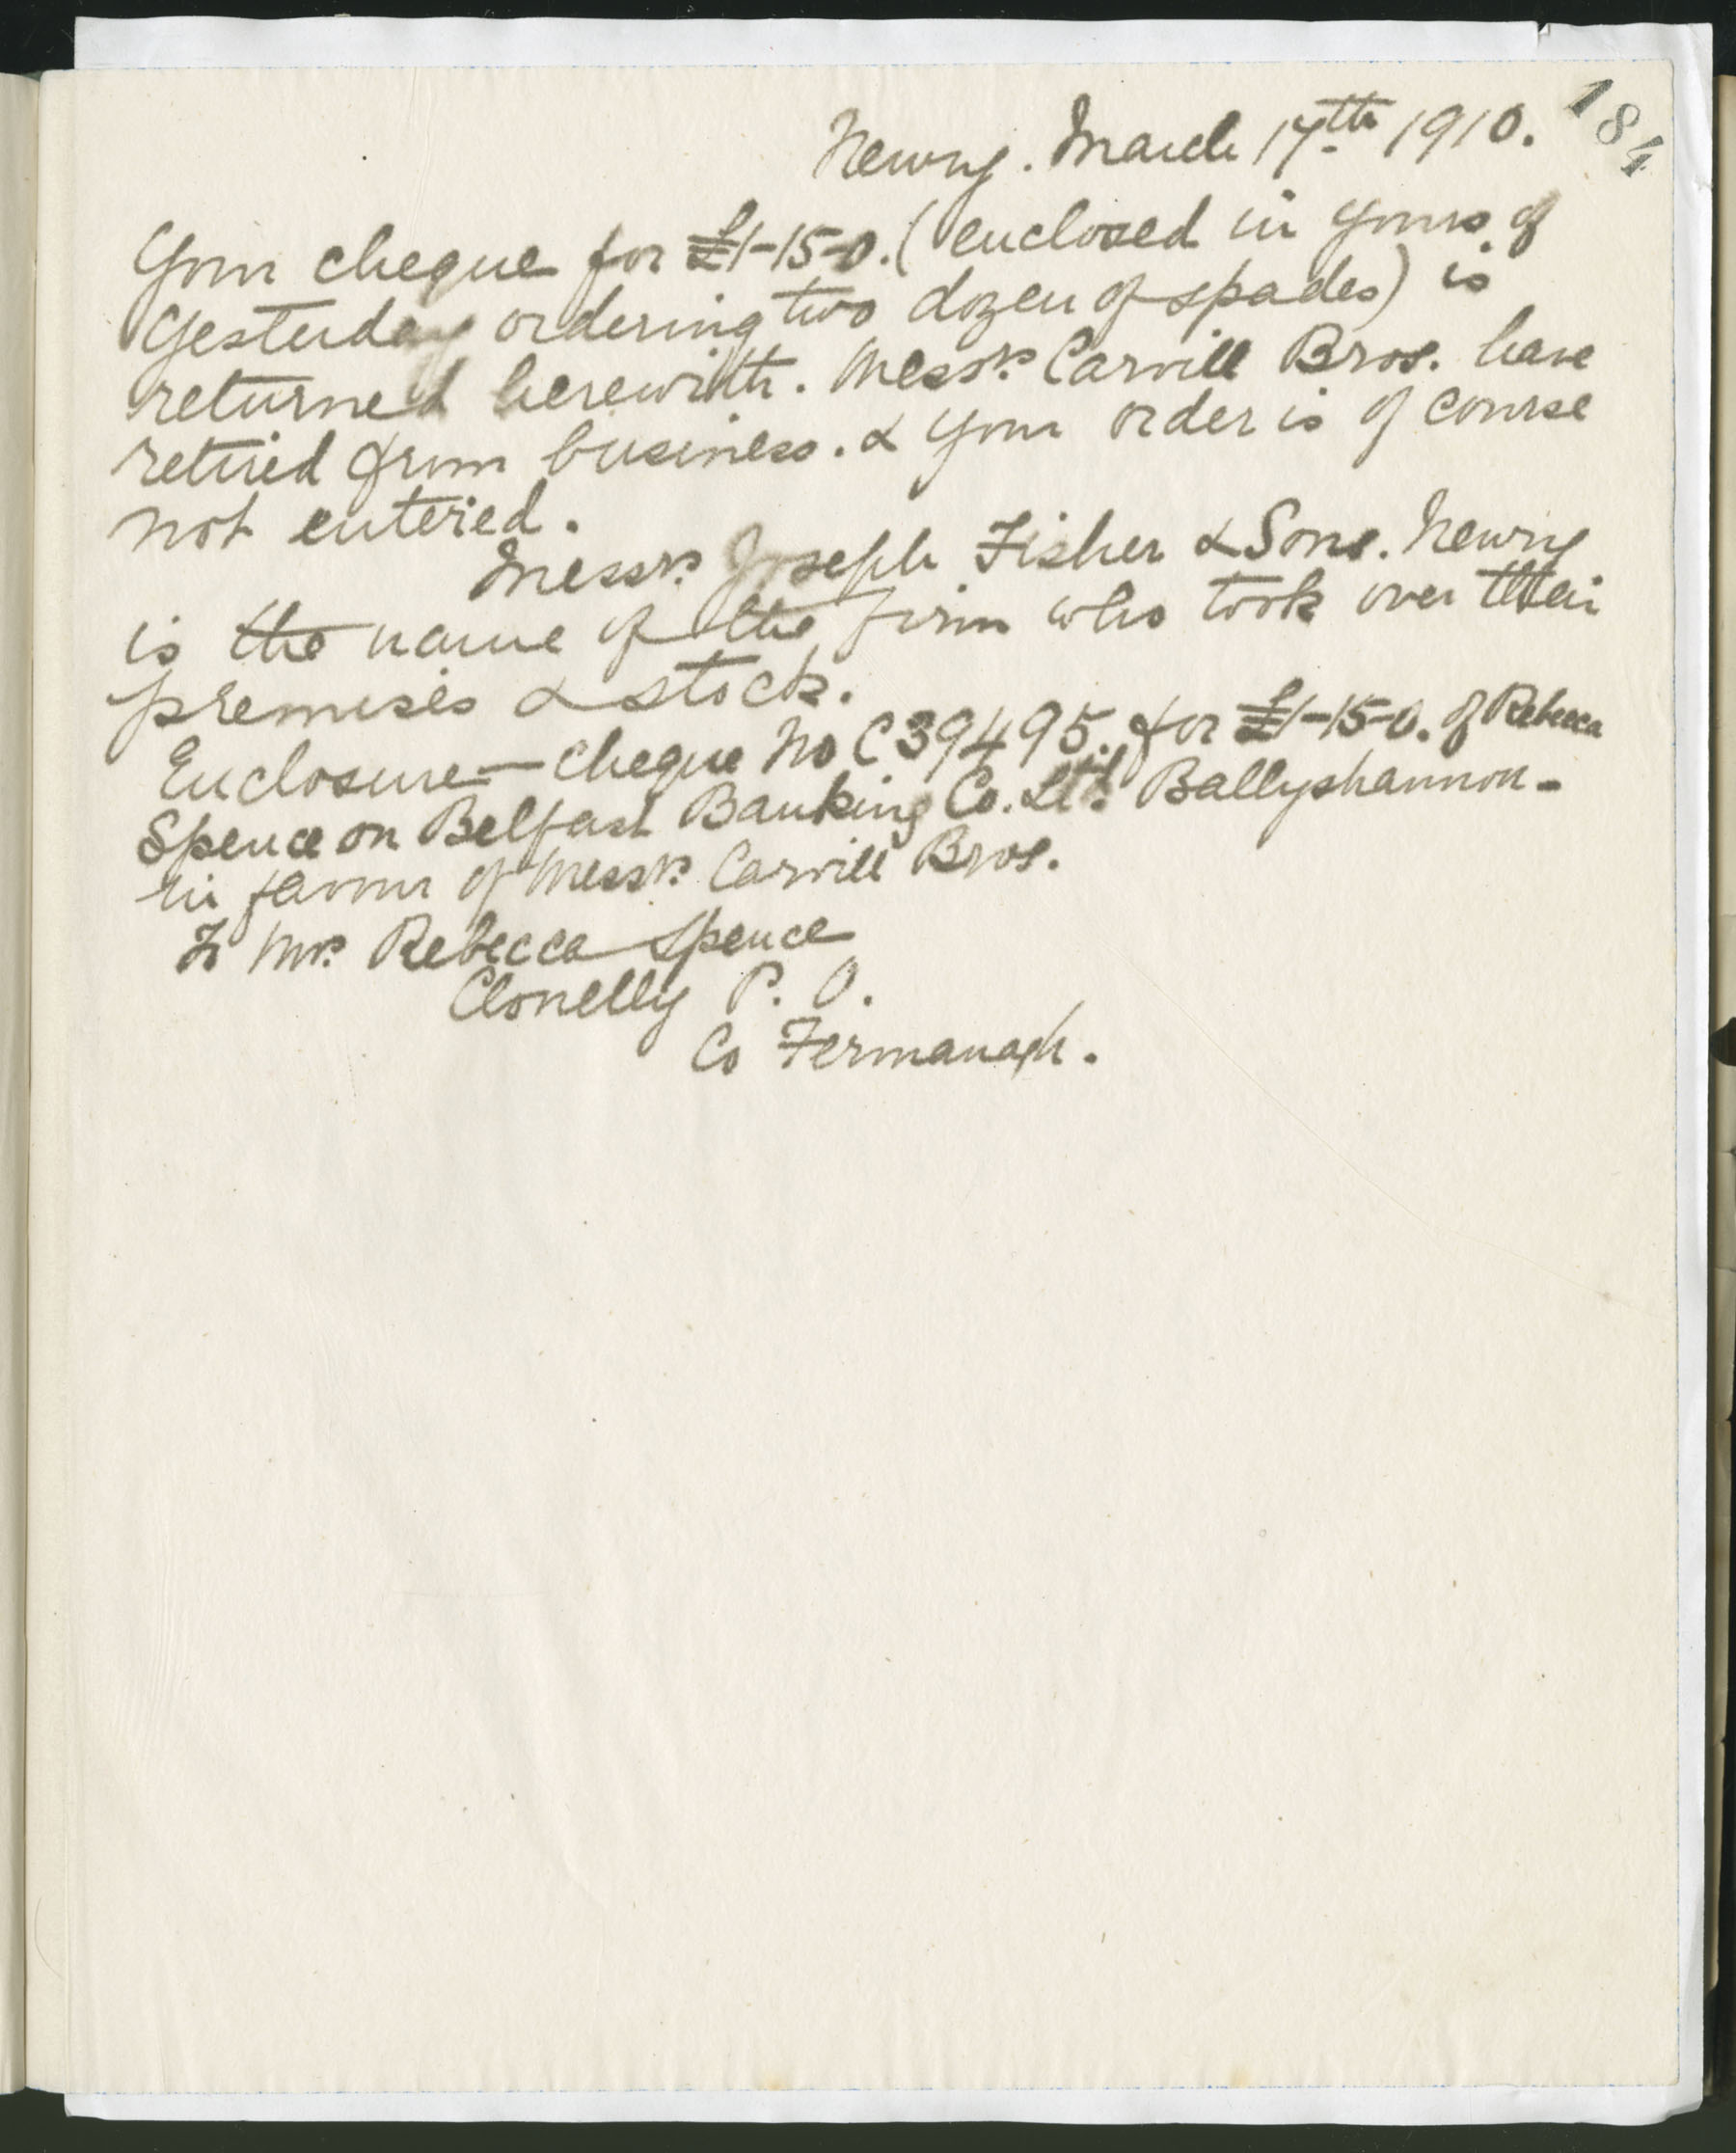 184
Newry. March 17th 1910.
Your cheque for £1-15-0. (enclosed in yours of
yesterday ordering two dozen of spades) is
returned herewith. Messrs. Carvill Bros. have
retired from business. & your order is of course
not entered.
Messrs. Joseph Fisher & Sons. Newry
is the name of the firm who took over their
premises & stock.
Enclosure — cheque No C39495. for £1-15-0. of Rebecca
Spence on Belfast Banking Co. Ltd. Ballyshannon -
in favour of Messrs. Carvill Bros.
To Mrs. Rebecca Spence
Clonelly P. O.
Co Fermanagh.